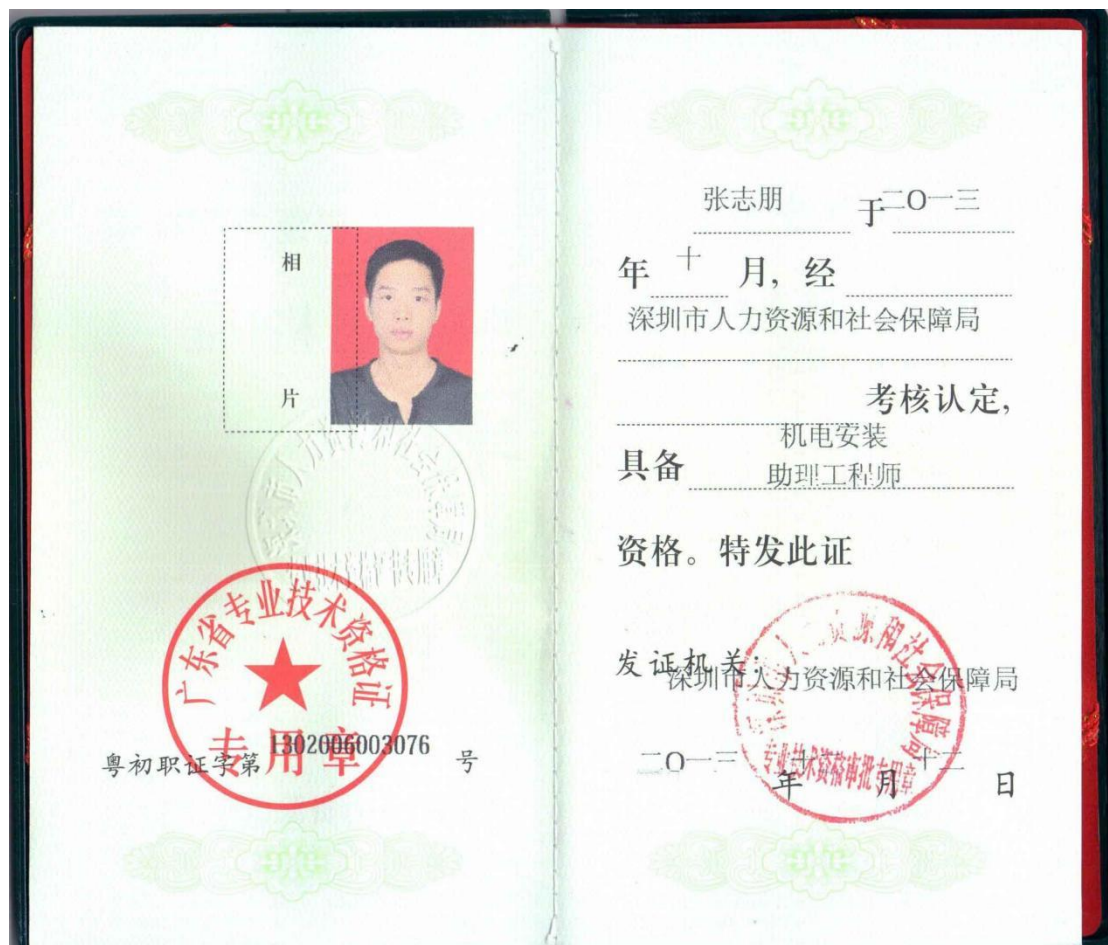 相
片
广东省专业技术资格证
专用章
粤初职证字第1302006003076号
张志朋 于二O一三
年十月,经
深圳市人力资源和社会保障局
考核认定,
具备 机电安装
助理工程师
资格。特发此证
发证机关:
深圳市人力资源和社会保障局
专业技术资格审批专用章
二O一三年十月十二日